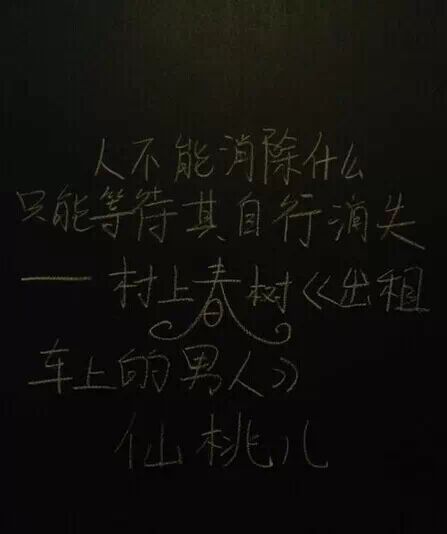 人不能消除什么
只能等待其自行消失
——村上春树《出租
车上的男人》
仙桃儿